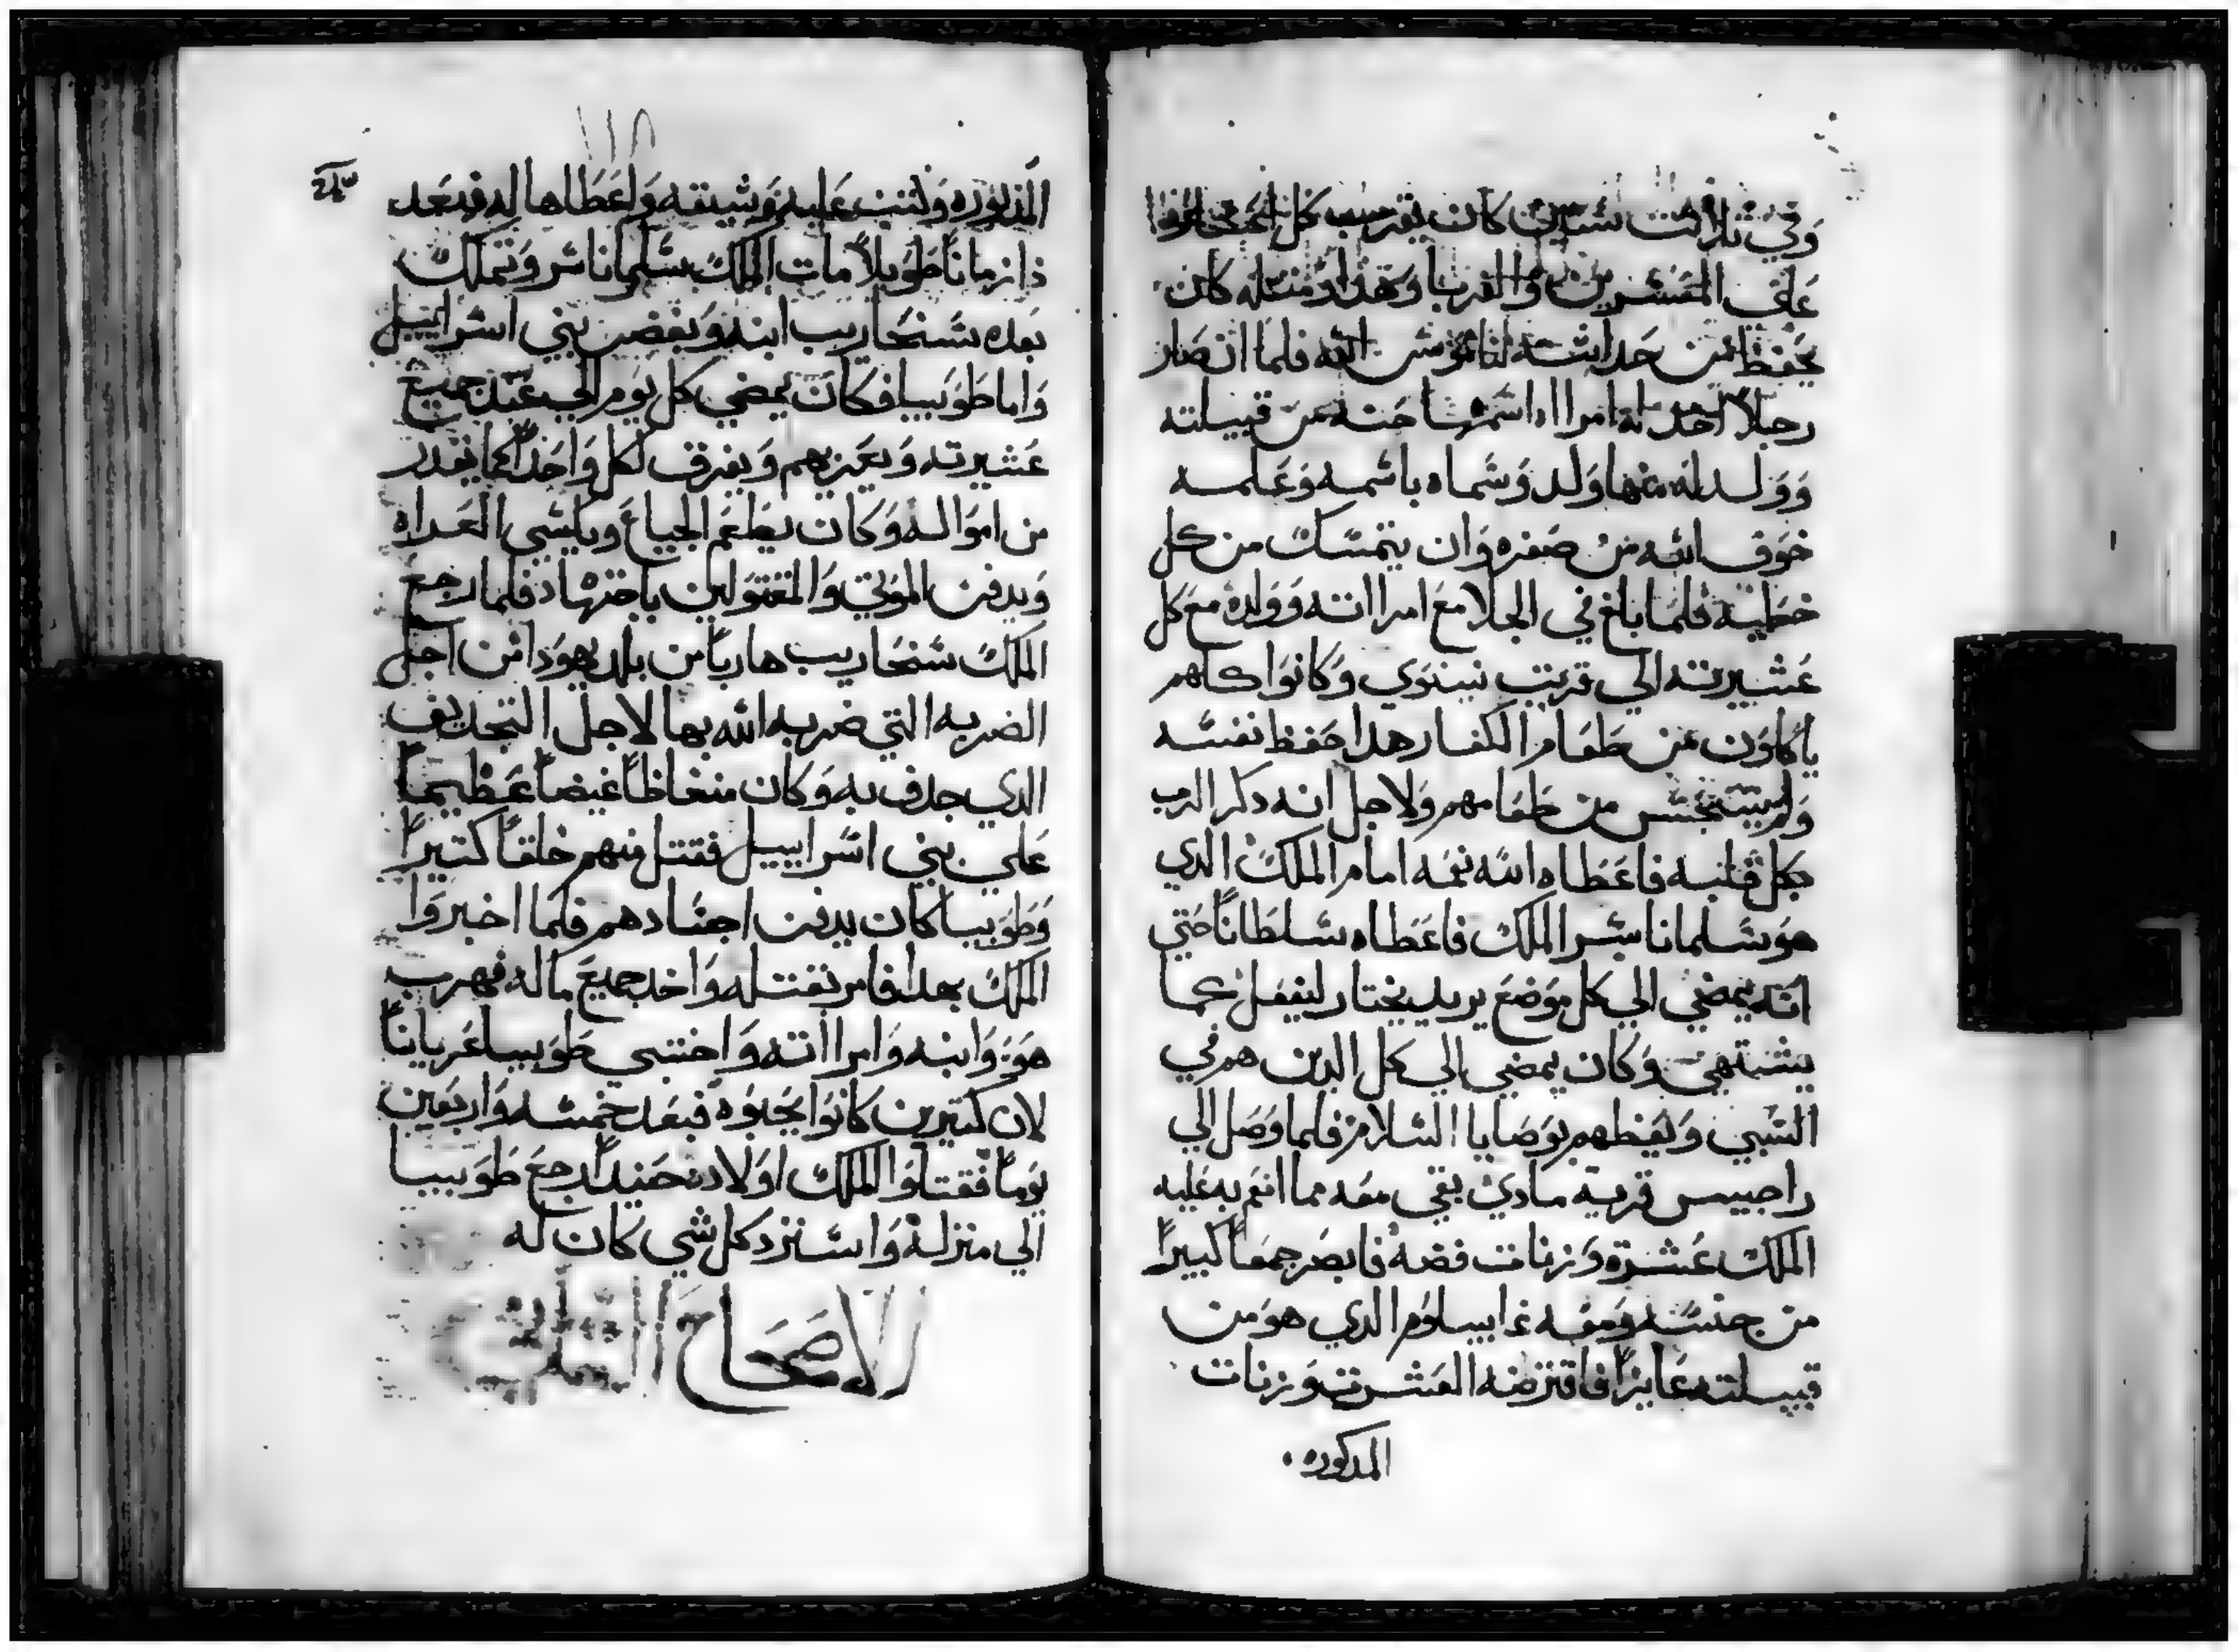 وفي ثلاثت سنين كان يقرب كل
علي المعشرين والغربا وهدا ومثله كان
يحفظ من حداثته لناموس الله فلما ان صار
رجلاً اخد له امراه اسمها حنه من قبيلته
وولد له منها ولد وسماه باسمه وعلمه
خوف الله من صغره وان يتمسك من كل
خطيه فلما بلغ في الجلا مع امراته وولده مع كل
عشيرته الي قريت نينوي وكانوا كلهم
ياكلون من طعام الكفار هدا حفظ نفسه
ولم يتنجس من طعامهم ولاجل انه دكر الرب
بكل قلبه فاعطاه الله نعمه امام الملك الدي
هو سلماناسر الملك فاعطاه سلطاناً حتي
انه يمضي الي كل موضع يريد يختار ليفعل كما
يشتهي وكان يمضي الي كل الدين هم في
السبي ويعظهم بوصايا السلام فلما وصل الي
راجييس قرية مادي بقي معه مما انعم به عليه
الملك عشرة وزنات فضه فابصر جمعاً كبيراً
من جنسه ومعه غابيلوم الدي هو من
قبيلته عايزاً فاقترضه العشرت وزنات
المدكوره
١١٨
المدكوره وكتب عليه وثيقه واعطاها له فبعد
دا زماناً طويلاً مات الملك سلماناسر وتملك
بعده سنحاريب ابنه وبغض بني اسراييل
واما طوبيا فكان يمضي كل يوم الي عند جميع
عشيرته ويعزيهم ويفرق لكل واحداً كما يقدر
من امواله وكان يطعم الجياع ويكسي العداه
ويدفن الموتي والمقتولين باجتهاد فلما رجع
الملك سنحاريب هارباً من بلد يهودا من اجل
الضربه التي ضربه الله بها لاجل التجديف
الدي جدف به وكان منغاظاً غيضاً عظيماً
علي بني اسراييل فقتل منهم خلقاً كتيراً
وطوبيا كان يدفن اجسادهم فلما اخبروا
الملك بهدا فامر بقتله واخد جميع ماله فهرب
هو وابنه وامراته واختبي طوبيا عرياناً
لان كتيرين كانوا يحبوه فبعد خمسه واربعين
يوماً فقتلوا الملك اولاده حنيداً رجع طوبيا
الي منزله واسترد كل شي كان له
الاصحاح الثاني